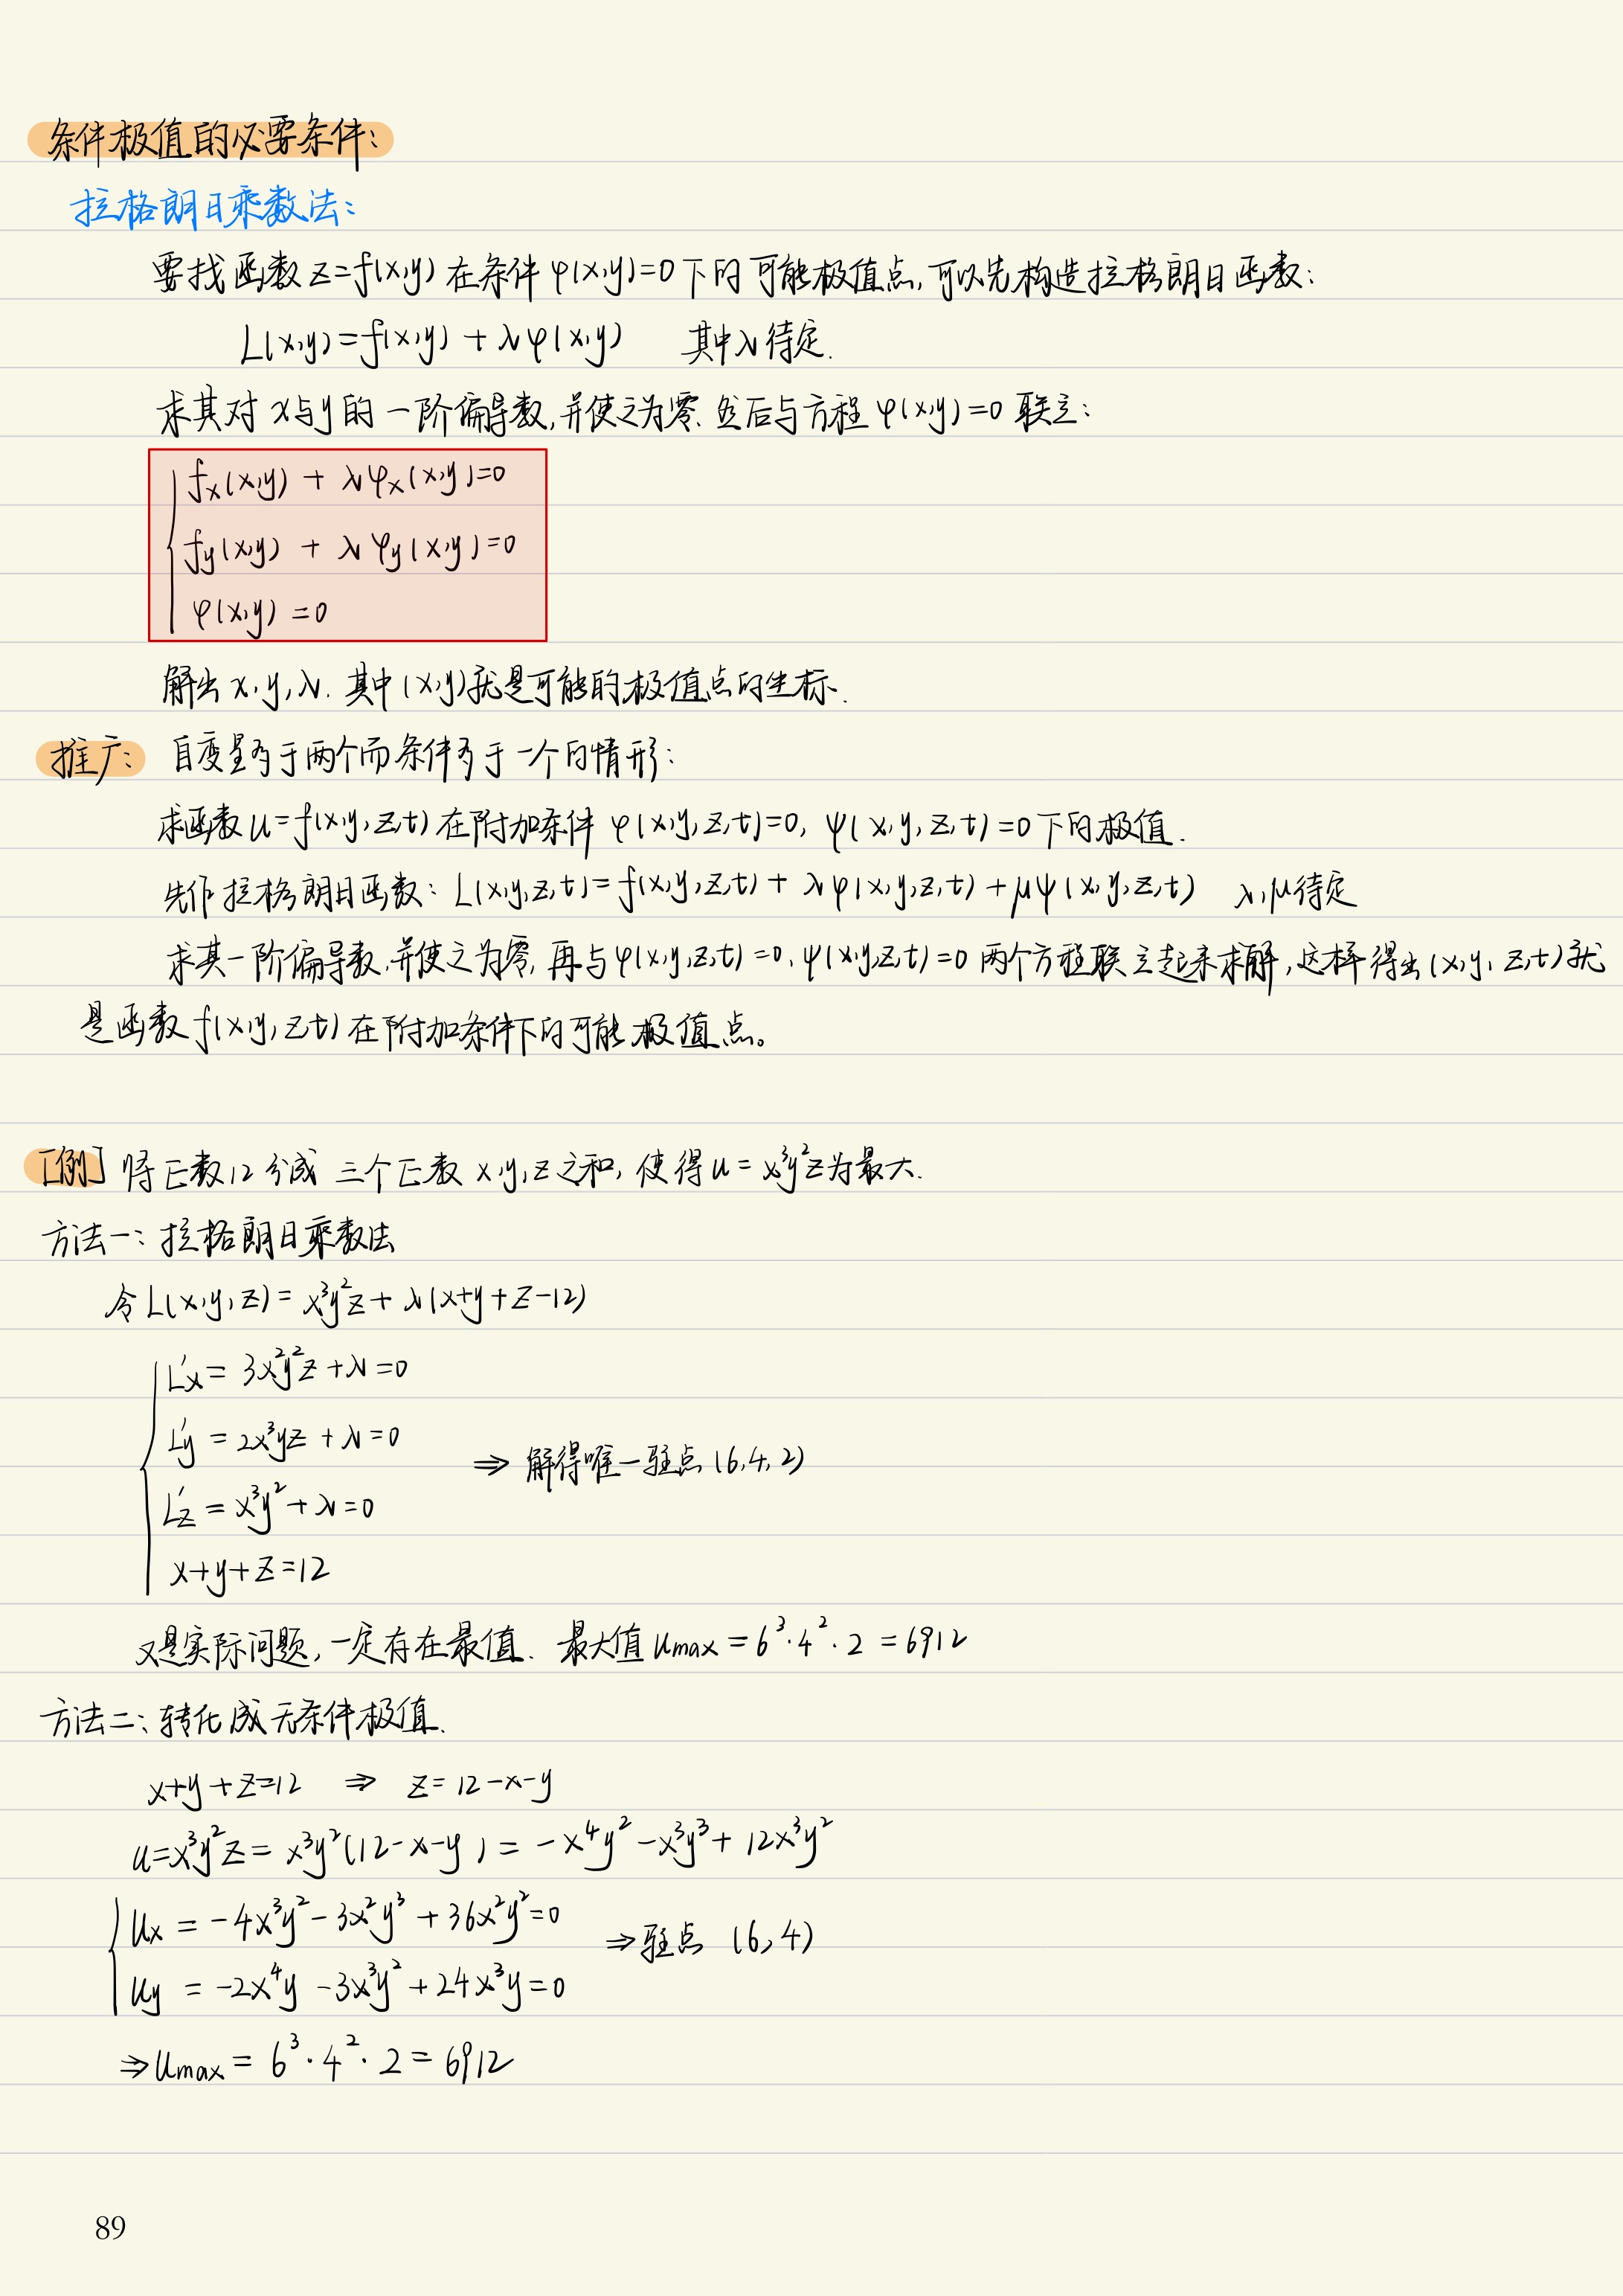 条件极值的必要条件:
拉格朗日乘数法:
要找函数 z=f(x,y) 在条件 φ(x,y)=0 下的可能极值点,可以先构造拉格朗日函数:
L(x,y)=f(x,y) + λφ(x,y) 其中λ待定.
求其对 x与y 的一阶偏导数,并使之为零. 然后与方程 φ(x,y)=0 联立:
f_x(x,y) + λφ_x(x,y)=0
f_y(x,y) + λφ_y(x,y)=0
φ(x,y)=0
解出 x,y,λ. 其中(x,y)就是可能的极值点的坐标.
推广: 自变量多于两个而条件多于一个的情形:
求函数 u=f(x,y,z,t) 在附加条件 φ(x,y,z,t)=0, ψ(x,y,z,t)=0 下的极值.
先作拉格朗日函数: L(x,y,z,t)=f(x,y,z,t) + λφ(x,y,z,t) + μψ(x,y,z,t) λ,μ待定
求其一阶偏导数,并使之为零,再与φ(x,y,z,t)=0,ψ(x,y,z,t)=0 两个方程联立起来求解,这样得出(x,y,z,t)就
是函数 f(x,y,z,t) 在附加条件下的可能极值点。
[例] 将正数12分成 三个正数 x,y,z之和, 使得u=x³y²z为最大.
方法一: 拉格朗日乘数法
令L(x,y,z)= x³y²z+λ(x+y+z-12)
L'x = 3x²y²z+λ=0
L'y = 2x³yz+λ=0
⇒ 解得唯一驻点(6,4,2)
L'z = x³y²+λ=0
x+y+z=12
又是实际问题,一定存在最值. 最大值 umax = 6³·4²·2 = 6912
方法二: 转化成无条件极值.
x+y+z=12 ⇒ z=12-x-y
u=x³y²z = x³y²(12-x-y) = -x⁴y²-x³y³+12x³y²
ux = -4x³y²-3x²y³+36x²y²=0
⇒驻点 (6,4)
uy = -2x⁴y-3x³y²+24x³y=0
⇒umax = 6³·4²·2 = 6912
89